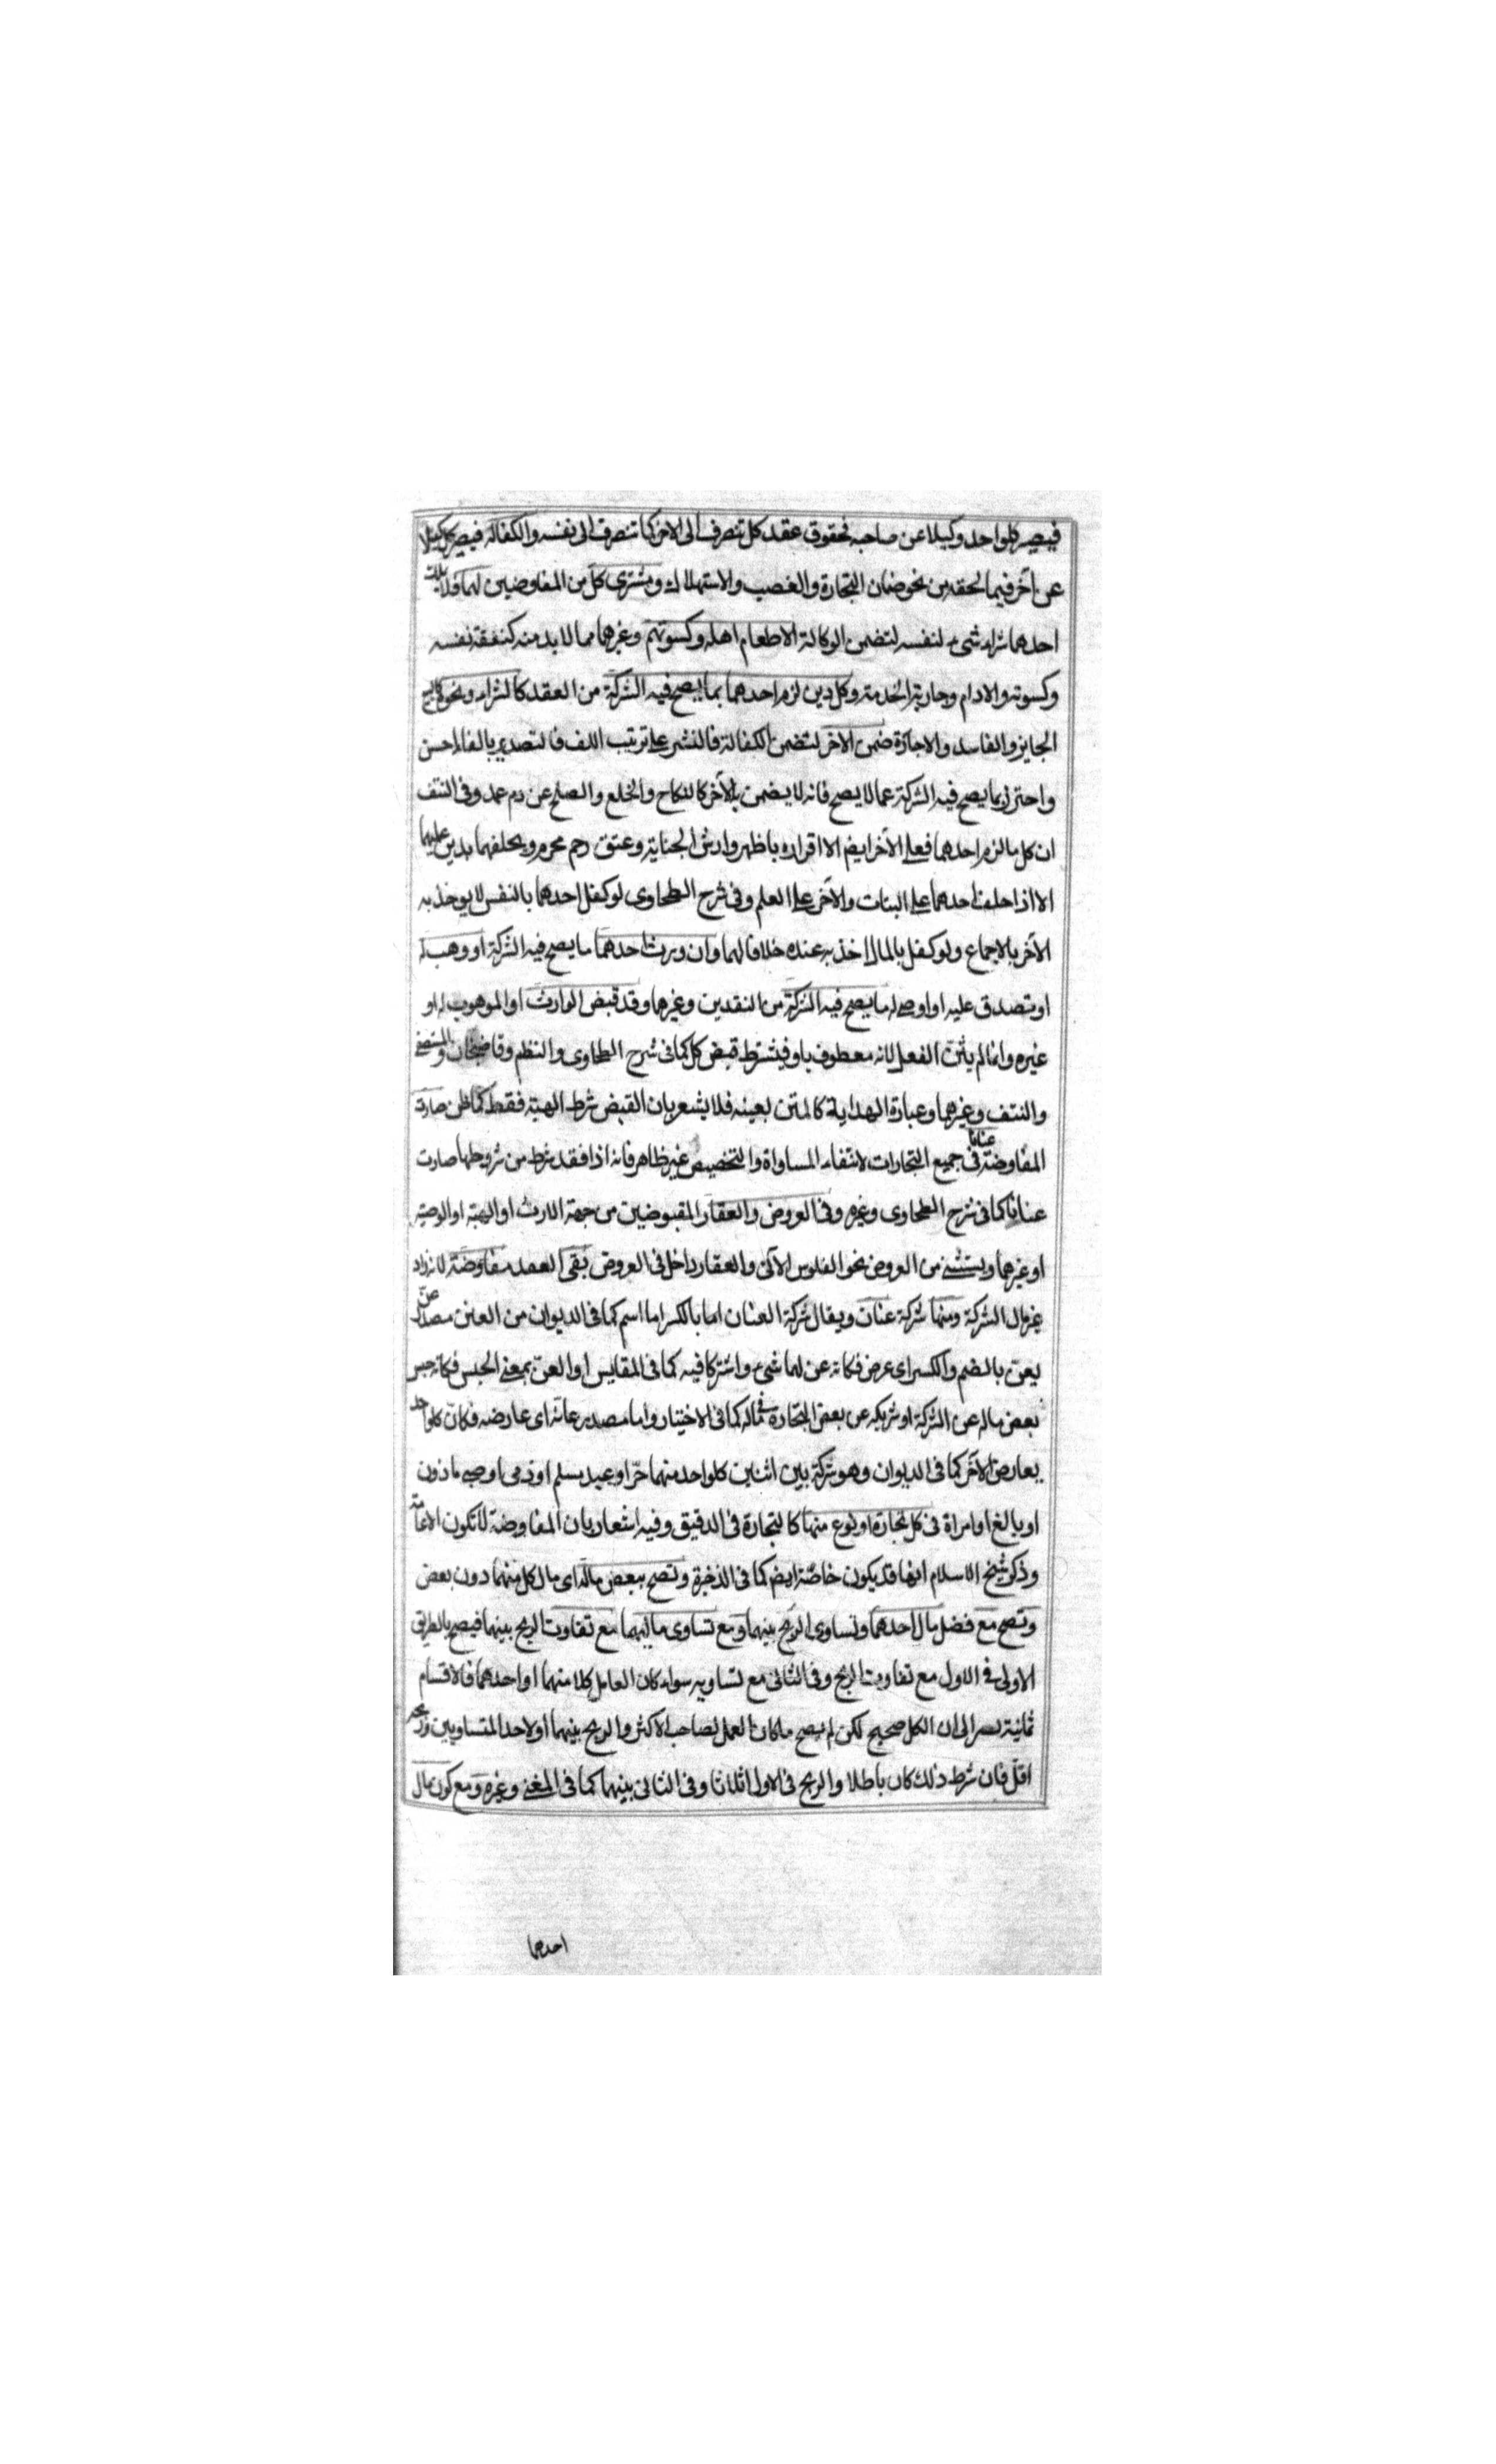 فيصير كلواحد وكيلا عن صاحبه بحقوق عقد كل تنصرف الى الاخر كما تنصرف الى نفسه والكفالة فيصير كل كفيلا
عن آخر فيما لحقه من نحو ضمان التجارة والغصب والاستهلاك ويشترى كل من المفاوضين لهما فلا يثبت
احدهما شراء شىء لنفسه لتضمن الوكالة الا طعام اهله وكسوتهم وغيرهما مما لا بد منه كنفقة نفسه
وكسوته والادام وجارية الخدمة وكل دين لزم احدهما بما يصح فيه الشركة من العقد كالشراء ونحوه كالبيع
الجايز والفاسد والاجارة ضمن الاخر لتضمن الكفالة فالنشر على ترتيب اللف فالتصدير بالفاء احسن
واحترز بما يصح فيه الشركة عما لا يصح فانه لا يضمن به الآخر كالنكاح والخلع والصلح عن دم عمد وفى النتف
ان كل ما لزم احدهما فعلى الآخر ايضم الا اقراره باظهر وارش الجناية وعتق رحم محرم ويحلفهما بدين عليهما
الا اذا حلف احدهما على البتات والآخر على العلم وفى شرح الطحاوى لو كفل احدهما بالنفس لا يوخذ به
الآخر بالاجماع ولو كفل بالمال اخذ به عنده خلافا لهما وان ورث احدهما ما يصح فيه الشركة او وهب له
او تصدق عليه او اوصى له ما يصح فيه الشركة من النقدين وغيرهما وقد قبض الوارث او الموهوب له او
غيره وانما لم يثن الفعل لانه معطوف باو فيشترط قبض كل كما فى شرح الطحاوى والنظم وقاضيخان والمستصفى
والنتف وغيرهما وعبارة الهداية كالمتن بعينه فلا يشعر بان القبض شرط الهبة فقط كما ظن صارت
المفاوضة عنانا فى جميع التجارات لانتفاء المساواة والتخصيص غير ظاهر فانه اذا فقد شرط من شروطها صارت
عنانا كما فى شرح الطحاوى وغيره وفى العروض والعقار المقبوضين من جهة الارث او الهبة او الوصية
او غيرهما ويستثنى من العروض نحو الفلوس الآتى والعقار داخل فى العروض بقى العقد مفاوضة لانه زاد
غير مال الشركة ومنها شركة عنان ويقال شركة العنان اما بالكسر اما اسم كما فى الديوان من العنن مصدر عن
يعن بالضم والكسر اى عرض فكانه عن لهما شىء واشتركا فيه كما فى المقايس او العن بمعنى الحبس فكانه حبس
بعض ماله عن الشركة او شريكه عن بعض التجارة فى ماله كما فى الاختيار واما مصدر عانّه اى عارضه فكان كلواحد
يعارض الآخر كما فى الديوان وهو شركة بين اثنين كلواحد منهما حرّ او عبد مسلم او ذمى او صبى ماذون
او بالغ او امراة فى كل تجارة او نوع منها كالتجارة فى الدقيق وفيه اشعار بان المفاوضة لا تكون الا عامة
وذكر شيخ الاسلام انها قد يكون خاصّة ايضم كما فى الذخيرة وتصح ببعض ماله اى مال كل منهما دون بعض
وتصح مع فضل مال احدهما وتساوى الربح بينهما ومع تساوى ماليهما مع تفاوت الربح بينهما فيصح بالطريق
الاولى فى الاول مع تفاوت الربح وفى الثانى مع تساويه سواء كان العامل كلا منهما او احدهما فالاقسام
ثمانية الى ان الكل صحيح لكن لم يصح ما كان العمل لصاحب الاكثر والربح بينهما او لاحد المتساويين وربحه
اقل فان شرط ذلك كان باطلا والربح فى الاول اثلاثا وفى الثانى بينهما كما فى المغنى وغيره ومع كون مال
احدهما